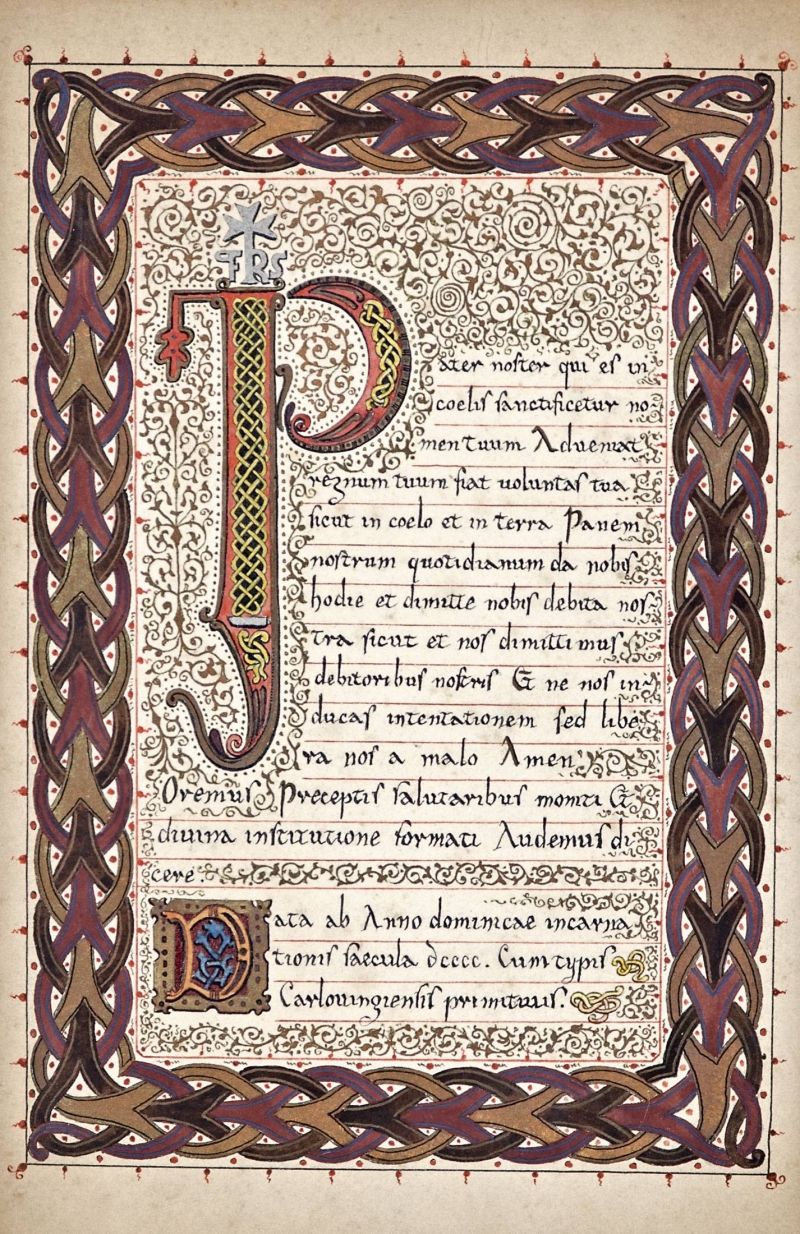 FRS
Pater noster qui es in
coelis sanctificetur no
men tuum Adveniat
regnum tuum fiat voluntas tua
sicut in coelo et in terra Panem
nostrum quotidianum da nobis
hodie et dimitte nobis debita nos
tra sicut et nos dimittimus
debitoribus nostris Et ne nos in
ducas intentationem sed libe
ra nos a malo Amen
Oremus Preceptis salutaribus moniti Et
divina institutione formati Audemus di
cere
Data ab Anno dominicae incarna
tionis saecula dcccc. Cum typis
Carlovingiensis primitivis.